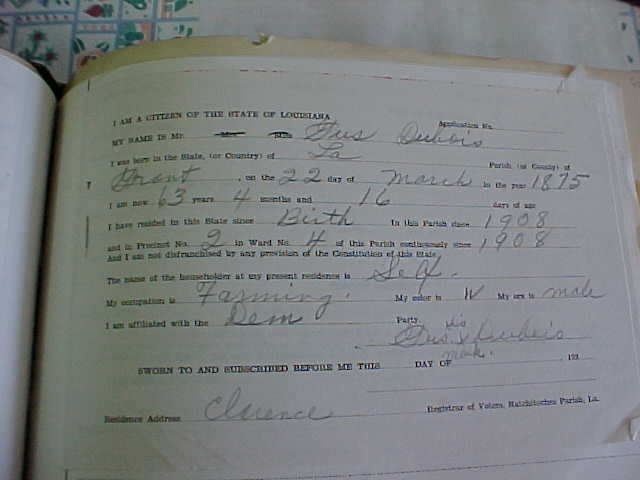 I AM A CITIZEN OF THE STATE OF LOUISIANA
Application No.
MY NAME IS Mr. Mrs. Miss Gus Dubois
I was born in the State, (or Country) of La Parish, (or County) of
Grant, on the 22 day of March in the year 1875
I am now 63 years 4 months and 16 days of age
I have resided in this State since Birth In this Parish since 1908
and in Precinct No. 2 in Ward No. 4 of this Parish continuously since 1908
And I am not disfranchised by any provision of the Constitution of this State
The name of the householder at my present residence is Self.
My occupation is Farming. My color is W My sex is male
I am affiliated with the Dem Party.
his
Gus x Dubois
mark.
SWORN TO AND SUBSCRIBED BEFORE ME THIS DAY OF , 193
Registrar of Voters, Natchitoches Parish, La.
Residence Address Clarence